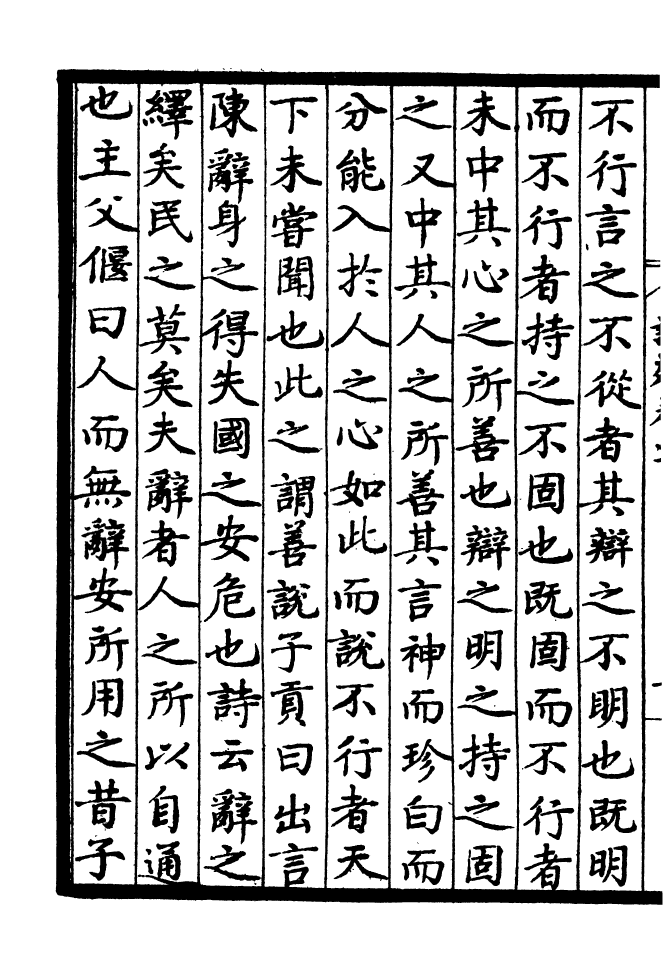 不行言之不從者其辯之不明也既明
而不行者持之不固也既固而不行者
未中其心之所善也辯之明之持之固
之又中其人之所善其言神而珍白而
分能入於人之心如此而說不行者天
下未嘗聞也此之謂善說子貢曰出言
陳辭身之得失國之安危也詩云辭之
繹矣民之莫矣夫辭者人之所以自通
也主父偃曰人而無辭安所用之昔子